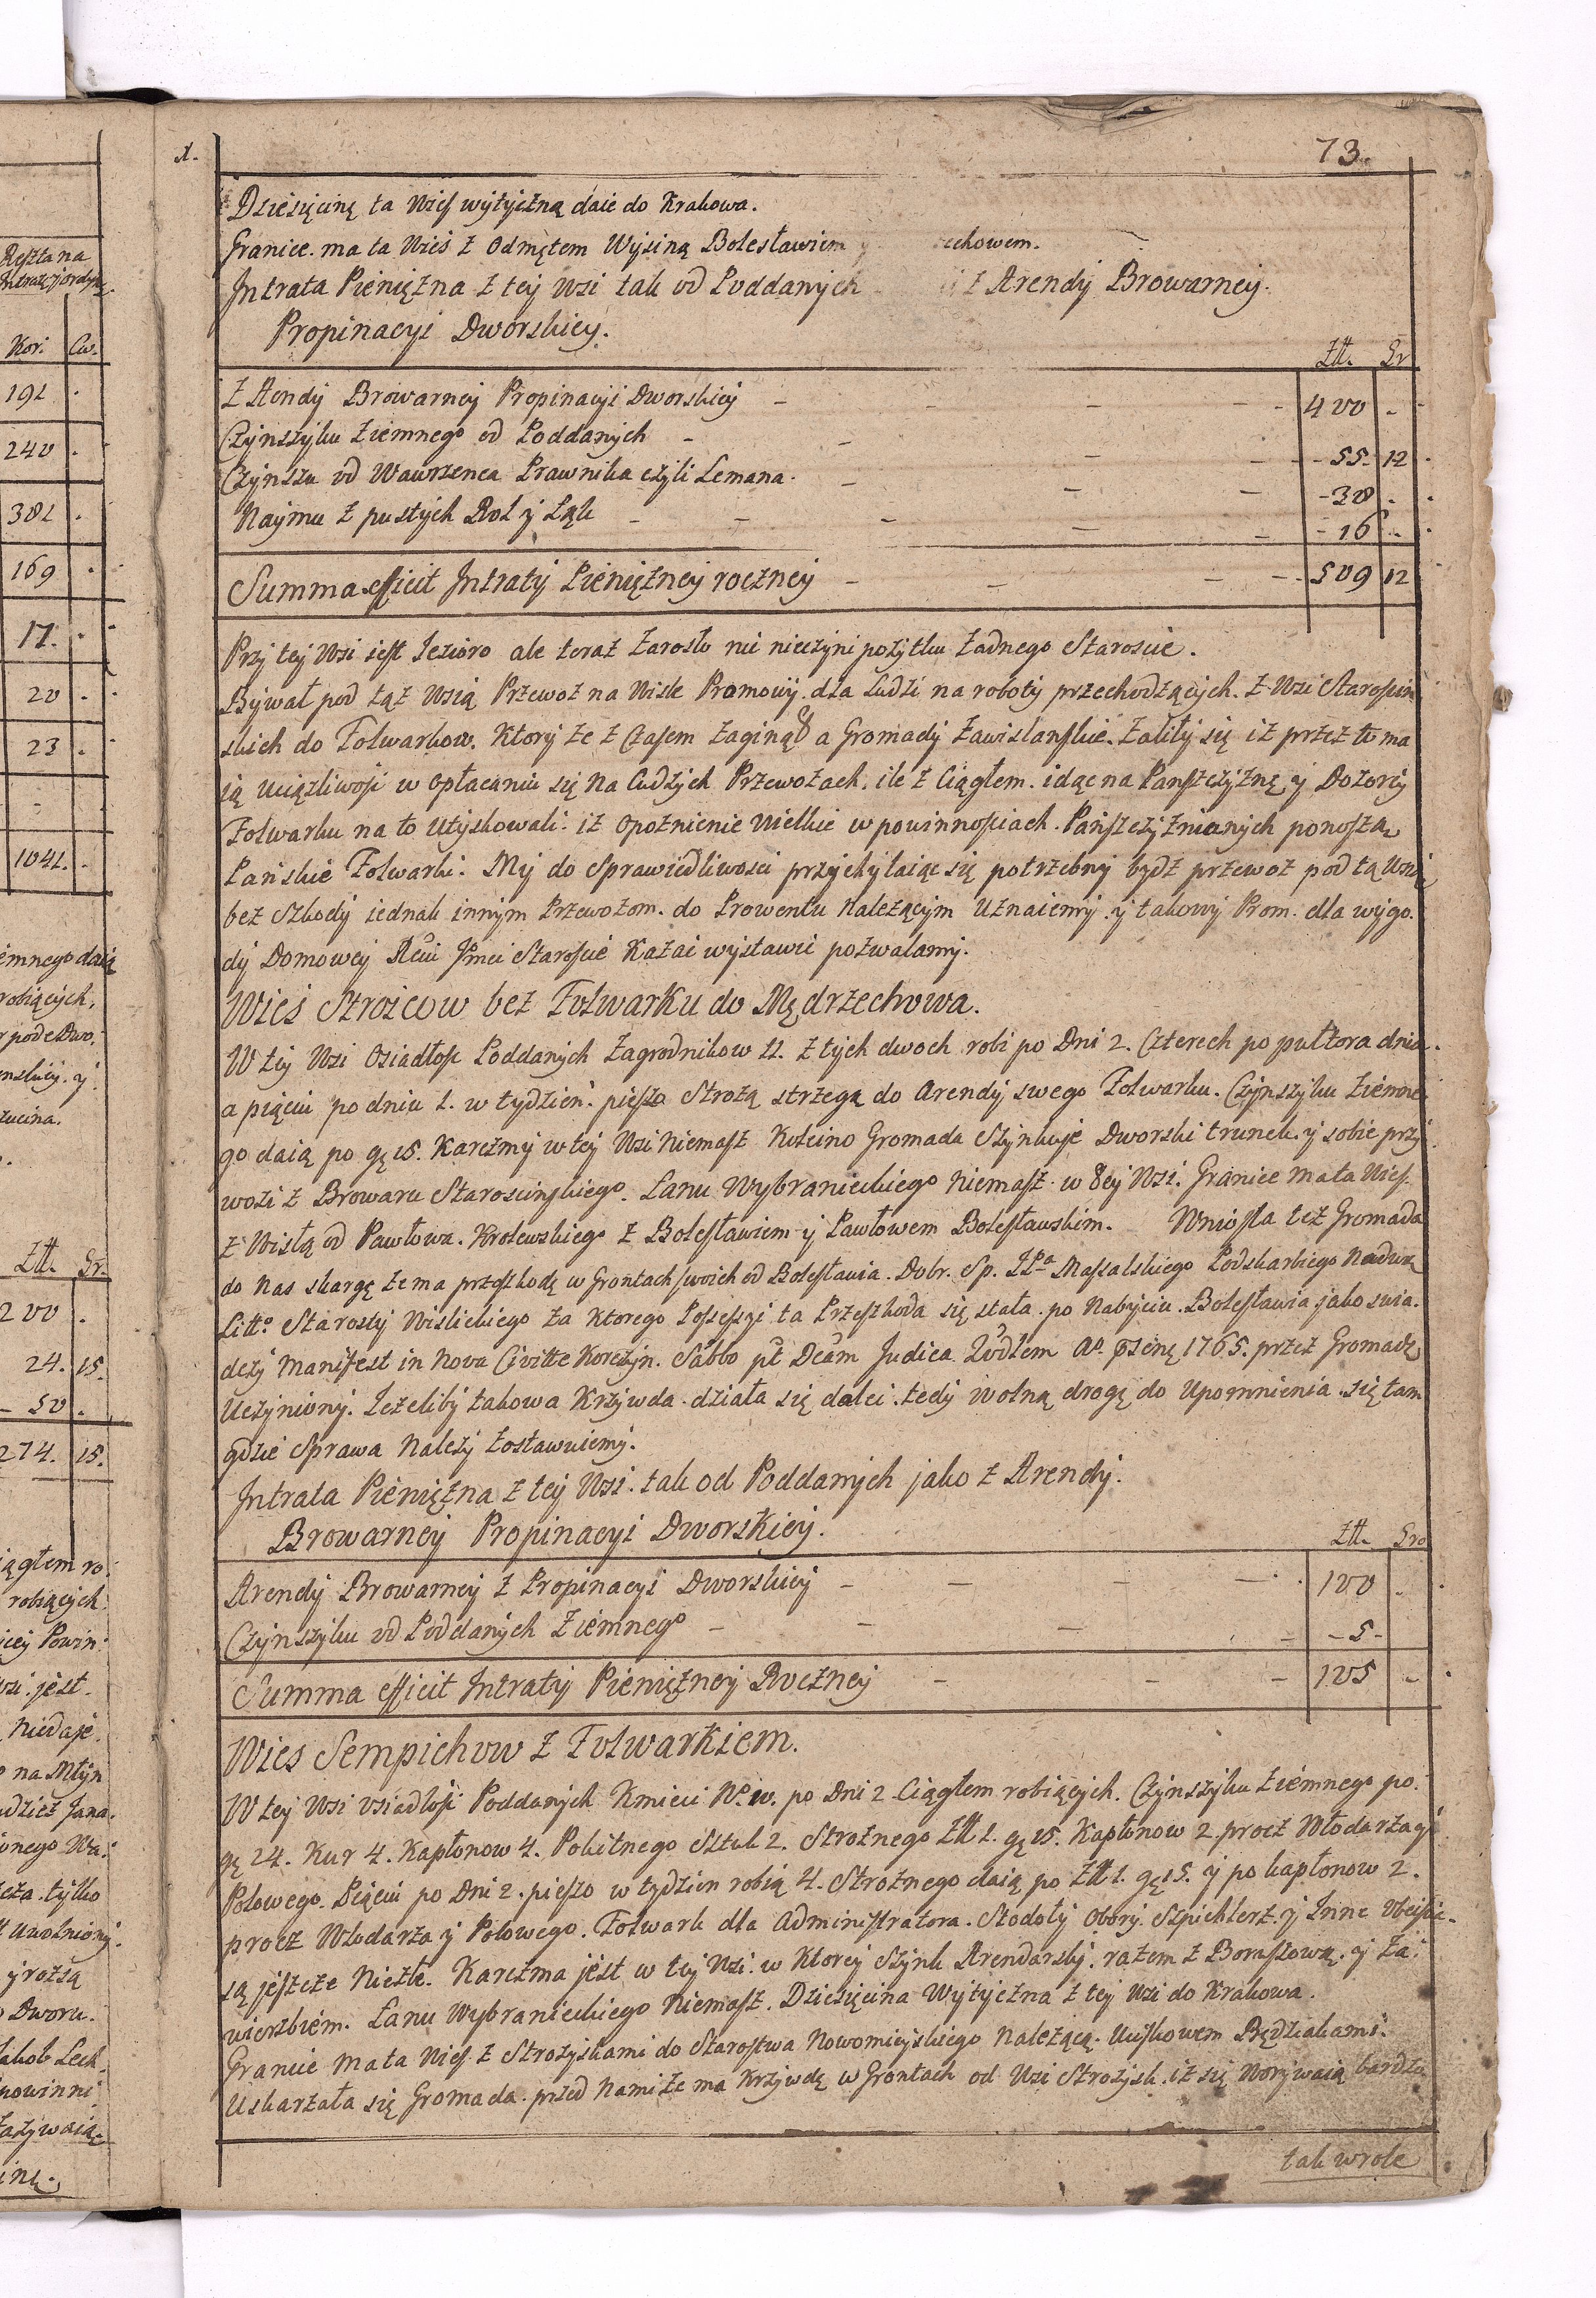 73.
Dziesięcinę ta Wieś wytyczną daie do Krakowa.
Granice ma ta Wieś z Odmętem Wyśiną Bolesławiem y chowem.
Intrata Pieniężna z tey Wsi tak od Poddanych z Arendy Browarney.
Propinacyi Dworskiey.
Złł. Gr
Z Arendy Browarney Propinacyi Dworskiey - - - - 400 -
Czynszyku Ziemnego od Poddanych - - - - 55. 12
Czynszu od Wawrzenca Prawnika czyli Lemana. - - - - 38 -
Naymu z pustych Rol y Łąk - - - - - 16 -
Summa efficit Intraty Pieniężney roczney - - - - 509 12
Przy tey Wsi iest Iezioro ale teraz zarosło nic nieczyni pożytku żadnego Staroscie.
Bywał pod tąż Wsią Przewoz na Wiśle Promowy dla Ludzi na roboty przechodzących z Wsi Starościn
skich do Folwarkow. Ktory że z Czasem zaginął a Gromady Zawislanskie Zaliły się iż przez to ma
ią uciążliwość w opłacaniu się na Cudzych Przewozach, ile z Ciągłem idąc na Panszczyznę, y Dozorcy
Folwarku na to Utyskowali iż opoznienie wielkie w powinnościach Panszczyznianych ponoszą
Pańskie Folwarki. My do Sprawiedliwości przychylaiąc się potrzebny bydź przewoz pod tą Wsią
bez szkody iednak innym Przewozom do Prowentu należącym Uznaiemy y takowy Prom dla wygo.
dy Domowey Jmci Staroscie Kazać wystawić pozwalamy.
Wieś Strożcow bez Folwarku do Mędrzechowa.
W tey Wsi Osiadłość Poddanych Zagrodnikow 11. z tych dwoch robi po Dni 2. Czterech po pułtora dnia.
a pięciu po dniu 1. w tydzień. pieszo Strożą strzegą do Arendy swego Folwarku. Czynszyku Ziemne
go daią po gę 15. Karczmy w tey Wsi Niemasz Koleino Gromada Szynkuje Dworski trunek y sobie przy
wozi z Browaru Starościnskiego. Łanu Wybranieckiego Niemasz w tey Wsi. Granice ma ta Wieś
z Wisłą od Pawłowa Krolewskiego z Bolesławiem y Pawłowem Bolesławskim. Wniosła też Gromada
do Nas skargę że ma przeszkodę w Grontach swoich od Bolesławia Dobr Sp. Massalskiego Podskarbiego Nadwo
Litto Starosty Wislickiego za Ktorego Possessyi ta Przeszkoda się stała po Nabyciu Bolesławia jako swia.
dczy Manifest in Nova Civitte Korczyn. Sabbo pt Dcam Judica 1765. przez Gromadę
Uczyniony. Ieżeliby takowa Krzywda działa się daley tedy wolną drogę do Upomnienia się tam
gdzie Sprawa Należy Zostawuiemy.
Intrata Pieniężna z tey Wsi tak od Poddanych jako z Arendy.
Browarney Propinacyi Dworskiey.
Złł. Gro
Arendy Browarney z Propinacyi Dworskiey - - - - 100 -
Czynszyku od Poddanych Ziemnego - - - - 5 -
Summa efficit Intraty Pieniężney Roczney - - - 105 -
Wies Sempichow z Folwarkiem.
W tey Wsi osiadłość Poddanych Kmieci No 10. po Dni 2 Ciągłem robiących. Czynszyku Ziemnego po
gę 24. Kur 4. Kapłonow 4. Pobitnego Sztuk 2. Strożnego Złł 1. gę 15. Kapłonow 2. procz Włodarza y
Polowego. Pięciu po Dni 2. pieszo w tydzien robią 4. Strożnego daią po Złł 1. gę 15. y po kapłonow 2.
procz Włodarza y Polowego. Folwark dla Administratora. Stodoły Obory Szpichlerz y Inne
są jeszcze Niezłe. Karczma jest w tey Wsi w Ktorey Szynk Arendarski razem z Boruszową y Za
wierzbiem. Łanu Wybranieckiego Niemasz. Dziesięcina Wytyczna z tey Wsi do Krakowa.
Granice ma ta Wieś z Strożyskami do Starostwa Nowomieyskiego Należącą Uciskowem
Uskarżała się Gromada przed Nami że ma Krzywdę w Grontach od Wsi Strożysk iż się Worywaią bardzo
tak wrole
Reszta na
Kor. Cw.
191
240
381
169
17.
20
23
1041.
emnego daią
robiących,
Złł. Gr.
200
24. 15.
50
274. 15.
iągłem ro
robiących
icey Powin
wsi jest
niedaje
na Młyn
Jana
tylko
Uwolniony
y rożsą
Dworu.
Jakob Lech
powinni
zażywaią
inę.